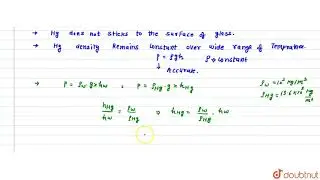 → Hg does not sticks to the surface of glass.
→ Hg density Remains constant over wide range of Temprature.
P = ρgh ρ → constant
↓
Accurate.
→ P = ρw g × hw , P = ρHg · g × hHg
ρw = 10³ kg/m³
ρHg = 13.6 × 10³ kg/m³
hHg/hw = ρw/ρHg ⇒ hHg = ρw/ρHg · hw
doubtnut